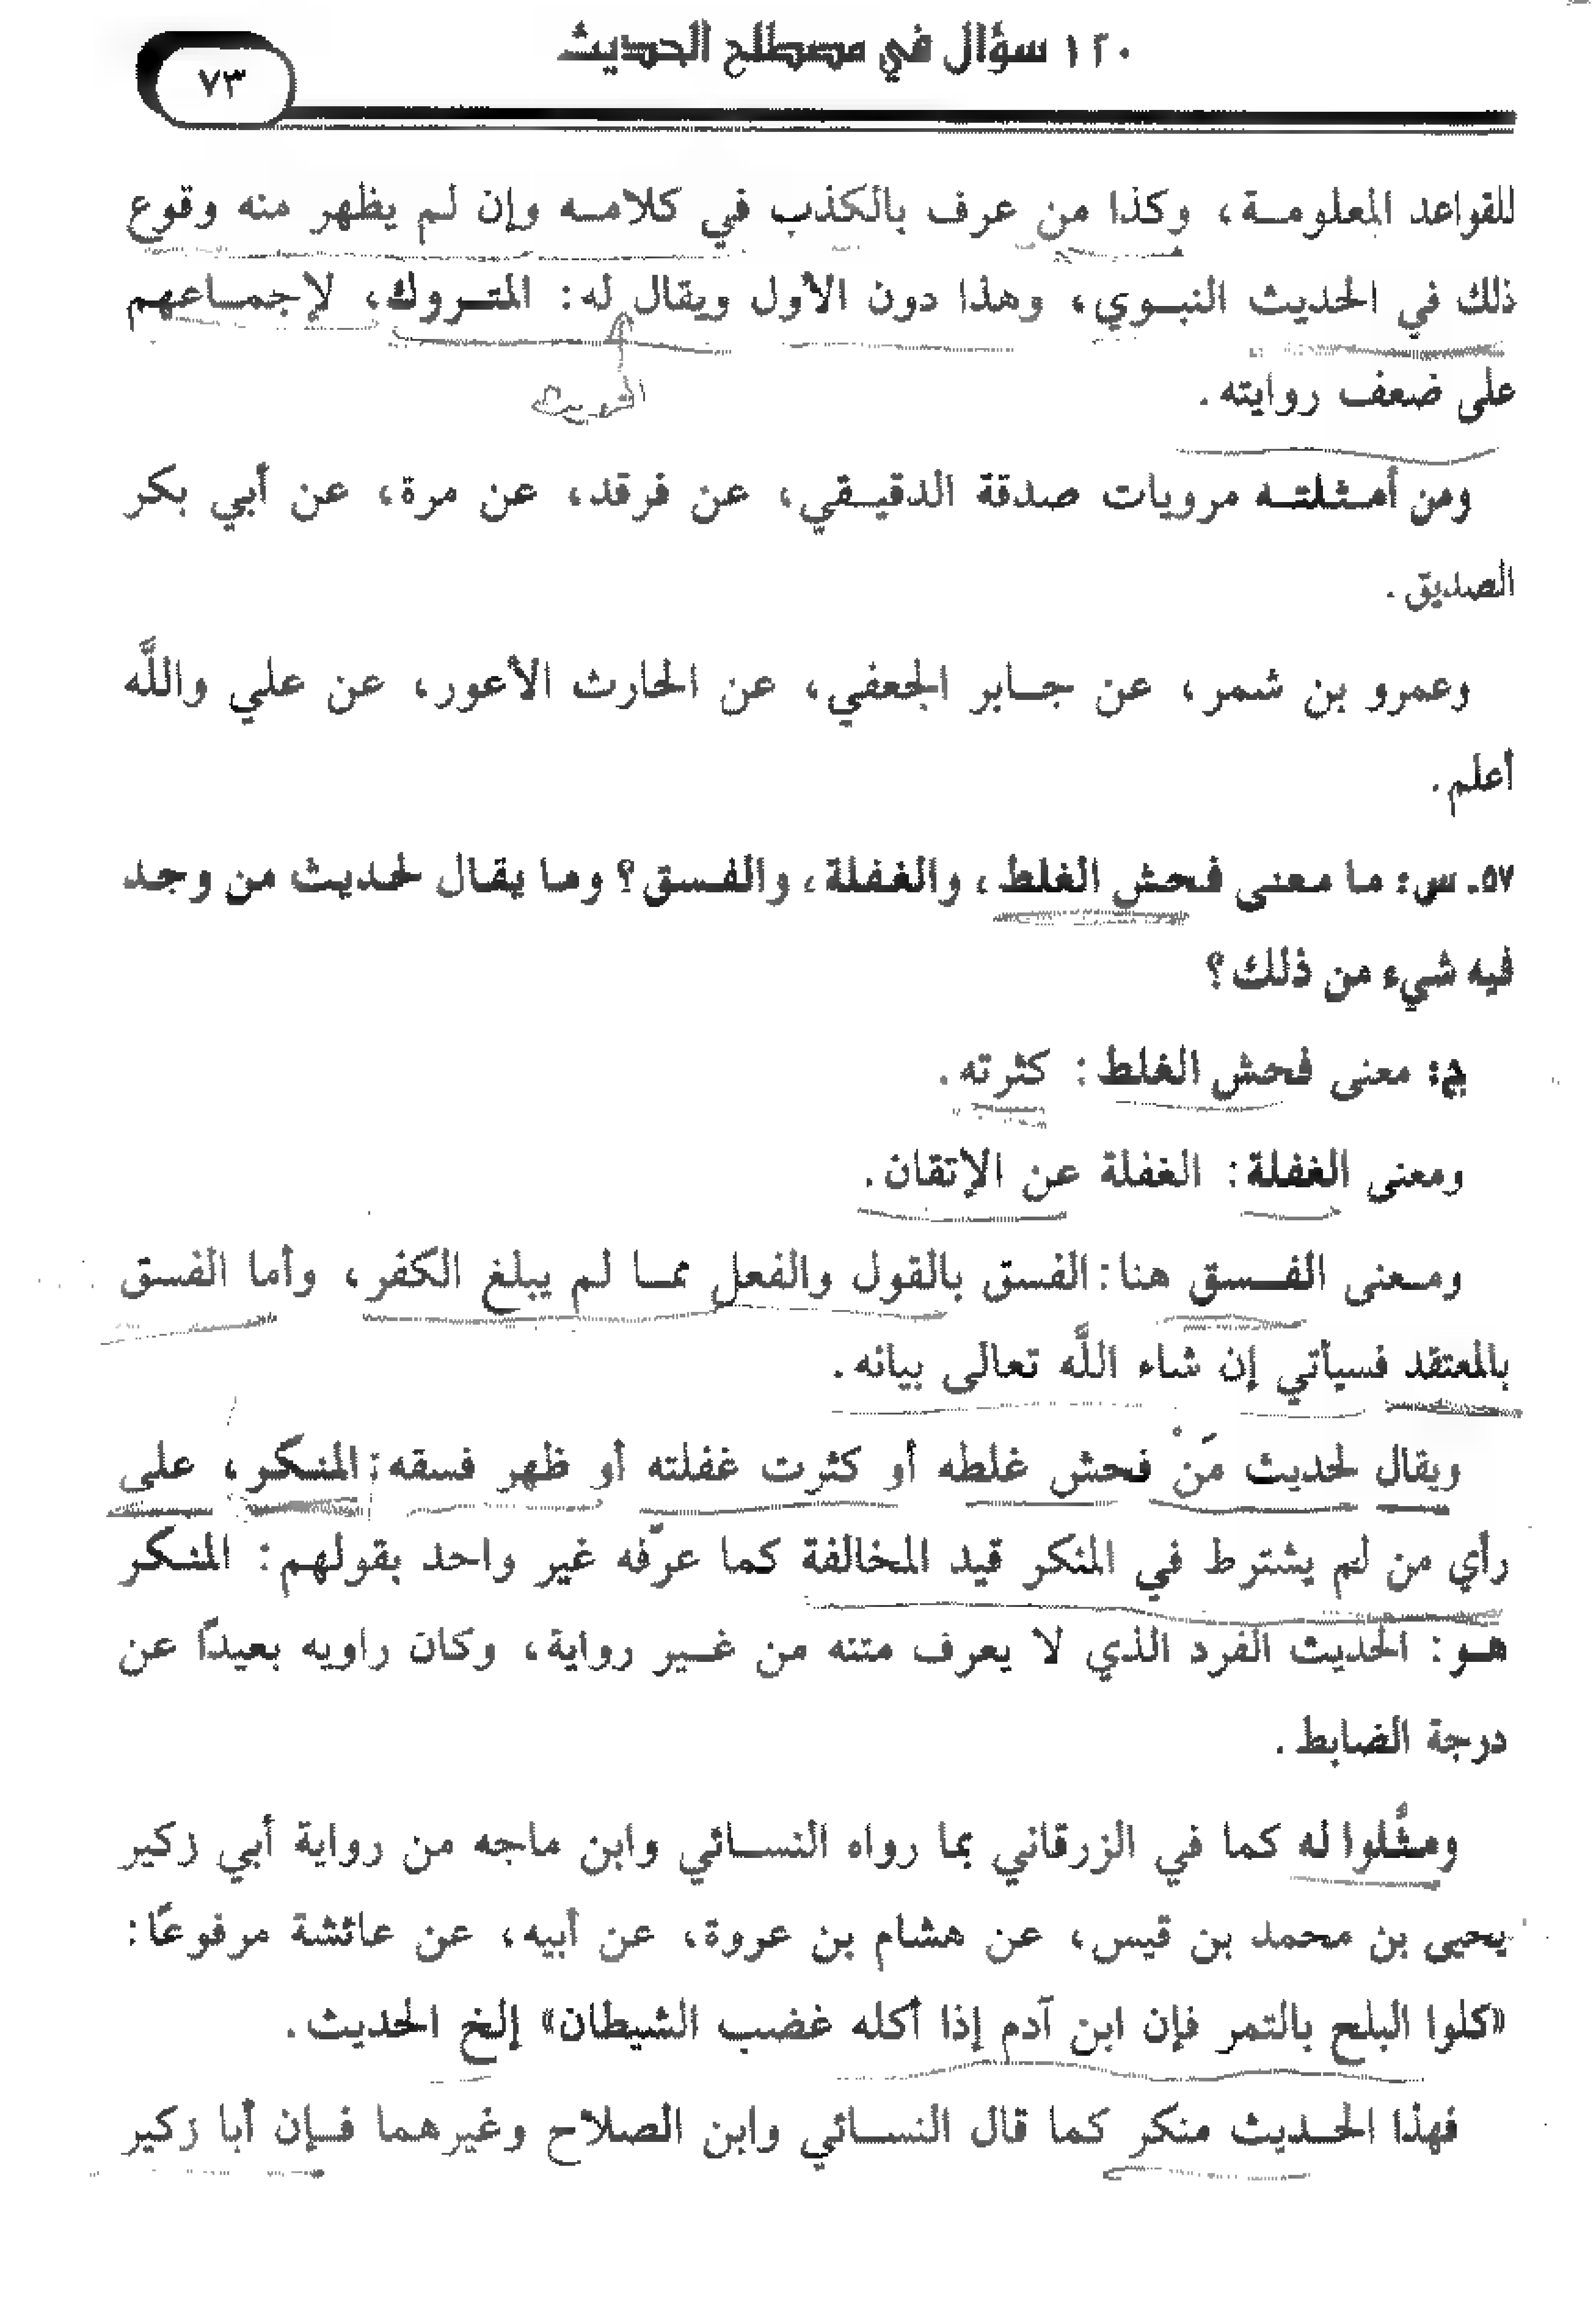 ١٢٠ سؤال في مصطلح الحديث
٧٣
للقواعد المعلومة، وكذا من عرف بالكذب في كلامه وإن لم يظهر منه وقوع
ذلك في الحديث النبوي، وهذا دون الأول ويقال له: المتروك، لإجماعهم
على ضعف روايته.
ومن أمثلته مرويات صدقة الدقيقي، عن فرقد، عن مرة، عن أبي بكر
الصديق.
وعمرو بن شمر، عن جابر الجعفي، عن الحارث الأعور، عن علي واللَّه
أعلم.
٥٧ـ س: ما معنى فحش الغلط، والغفلة، والفسق؟ وما يقال لحديث من وجد
فيه شيء من ذلك؟
ج: معنى فحش الغلط: كثرته.
ومعنى الغفلة: الغفلة عن الإتقان.
ومعنى الفسق هنا: الفسق بالقول والفعل مما لم يبلغ الكفر، وأما الفسق
بالمعتقد فسيأتي إن شاء اللَّه تعالى بيانه.
ويقال لحديث مَنْ فحش غلطه أو كثرت غفلته أو ظهر فسقه: المنكر، على
رأي من لم يشترط في المنكر قيد المخالفة كما عرّفه غير واحد بقولهم: المنكر
هو: الحديث الفرد الذي لا يعرف متنه من غير رواية، وكان راويه بعيدًا عن
درجة الضابط.
ومثَّلوا له كما في الزرقاني بما رواه النسائي وابن ماجه من رواية أبي زكير
يحيى بن محمد بن قيس، عن هشام بن عروة، عن أبيه، عن عائشة مرفوعًا:
«كلوا البلح بالتمر فإن ابن آدم إذا أكله غضب الشيطان» إلخ الحديث.
فهذا الحديث منكر كما قال النسائي وابن الصلاح وغيرهما فإن أبا زكير